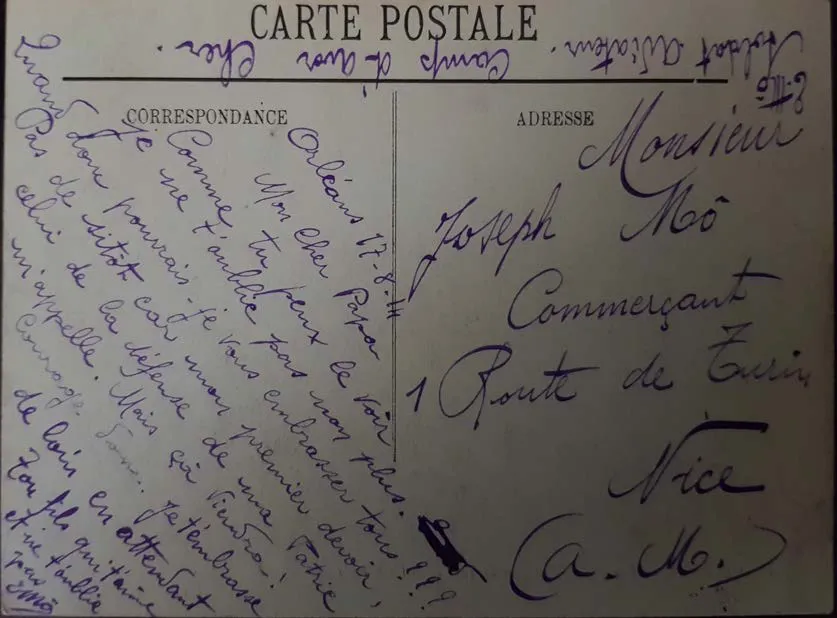 CARTE POSTALE
E. Mô
Soldat Aviateur. Camp d'avor Cher.
CORRESPONDANCE
Orléans 17-8-
Mon cher Papa
Comme tu peux le voir
Je ne t'oublie pas non plus.
Quand donc pourrais-je vous embrasser tous ???
Pas de sitôt car mon premier devoir,
celui de la défense de ma Patrie
m'appelle. Mais çà viendra!
Courage. Je t'embrasse
de loin en attendant
Ton fils qui t'aime
et ne t'oublie
pas
Mô
ADRESSE
Monsieur
Joseph Mô
Commerçant
1 Route de Turin
Nice
(A. M.)